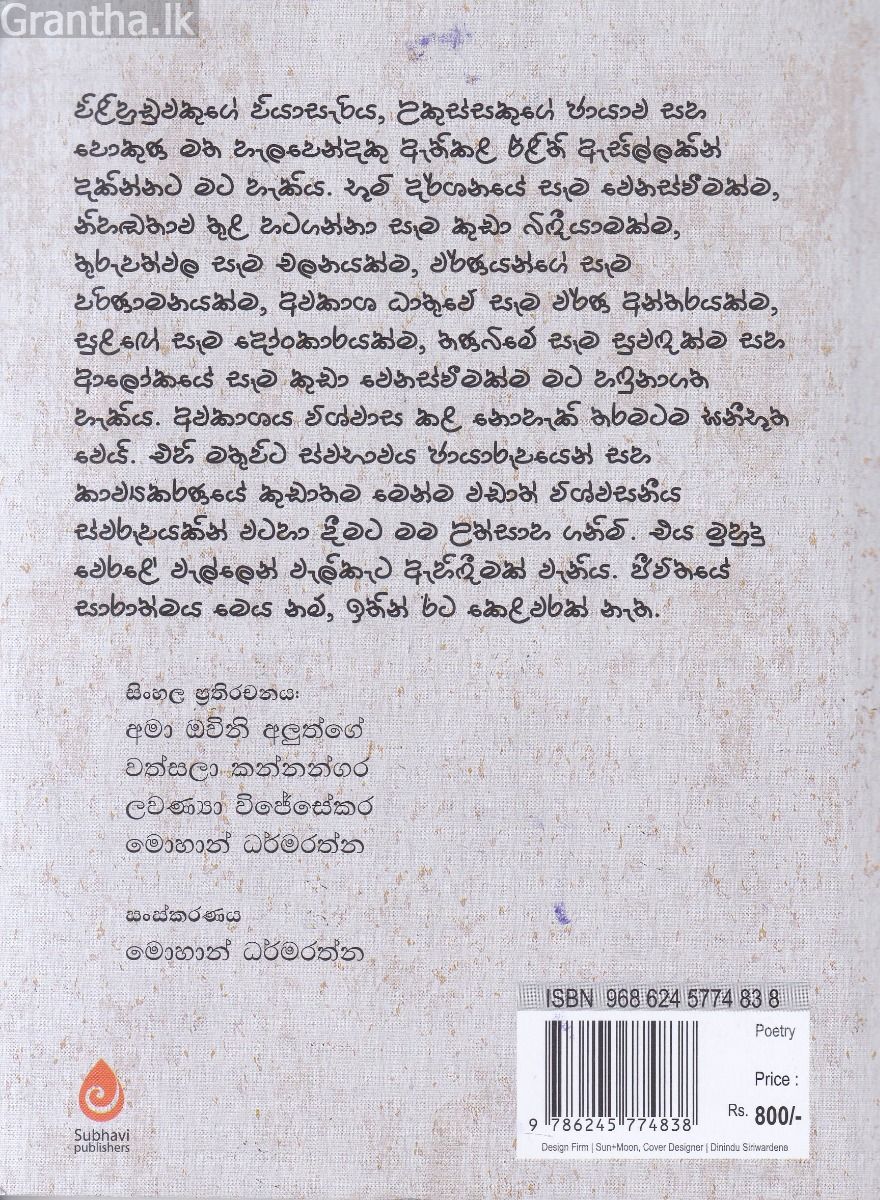 Grantha.lk
පිළිහුඩුවකුගේ පියාසැරිය, උකුස්සකුගේ ඡායාව සහ
පොකුණ මත හැලපෙන්දකු ඇතිකළ රැළිති ඇසිල්ලකින්
දකින්නට මට හැකිය. භූමි දර්ශනයේ සෑම වෙනස්වීමක්ම,
නිහඬතාව තුළ හටගන්නා සෑම කුඩා බිඳීයාමක්ම,
තුරුපත්වල සෑම චලනයක්ම, වර්ණයන්ගේ සෑම
පරිණාමනයක්ම, අවකාශ ධාතුවේ සෑම වර්ණ අන්තරයක්ම,
සුළඟේ සෑම දෝංකාරයක්ම, තණබිමේ සෑම සුවඳක්ම සහ
ආලෝකයේ සෑම කුඩා වෙනස්වීමක්ම මට හඳුනාගත
හැකිය. අවකාශය විශ්වාස කළ නොහැකි තරමටම ඝනීභූත
වෙයි. එහි මතුපිට ස්වභාවය ඡායාරූපයෙන් සහ
කාව්‍යකරණයේ කුඩාතම මෙන්ම වඩාත් විශ්වසනීය
ස්වරූපයකින් වටහා දීමට මම උත්සාහ ගනිමි. එය මුහුදු
වෙරළේ වැල්ලෙන් වැලිකැට ඇහිඳීමක් වැනිය. ජීවිතයේ
සාරාත්මය මෙය නම්, ඉතින් ඊට කෙළවරක් නැත.
සිංහල ප්‍රතිරචනය:
අමා ඔවිනි අලුත්ගේ
වත්සලා කන්නන්ගර
ලවණ්‍යා විජේසේකර
මොහාන් ධර්මරත්න
සංස්කරණය
මොහාන් ධර්මරත්න
ISBN 968 624 5774 83 8
Poetry
Price :
Rs. 800/-
9 786245 774838
Design Firm | Sun+Moon, Cover Designer | Dinindu Siriwardena
Subhavi
publishers